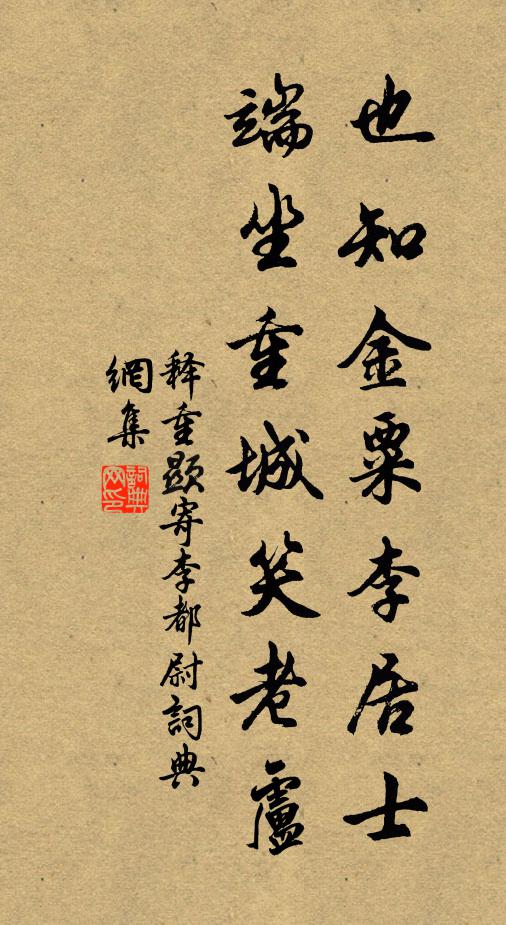 也知金粟李居士
端坐重城笑老盧
释重顯寄李都尉詞典
網集
詞典網印